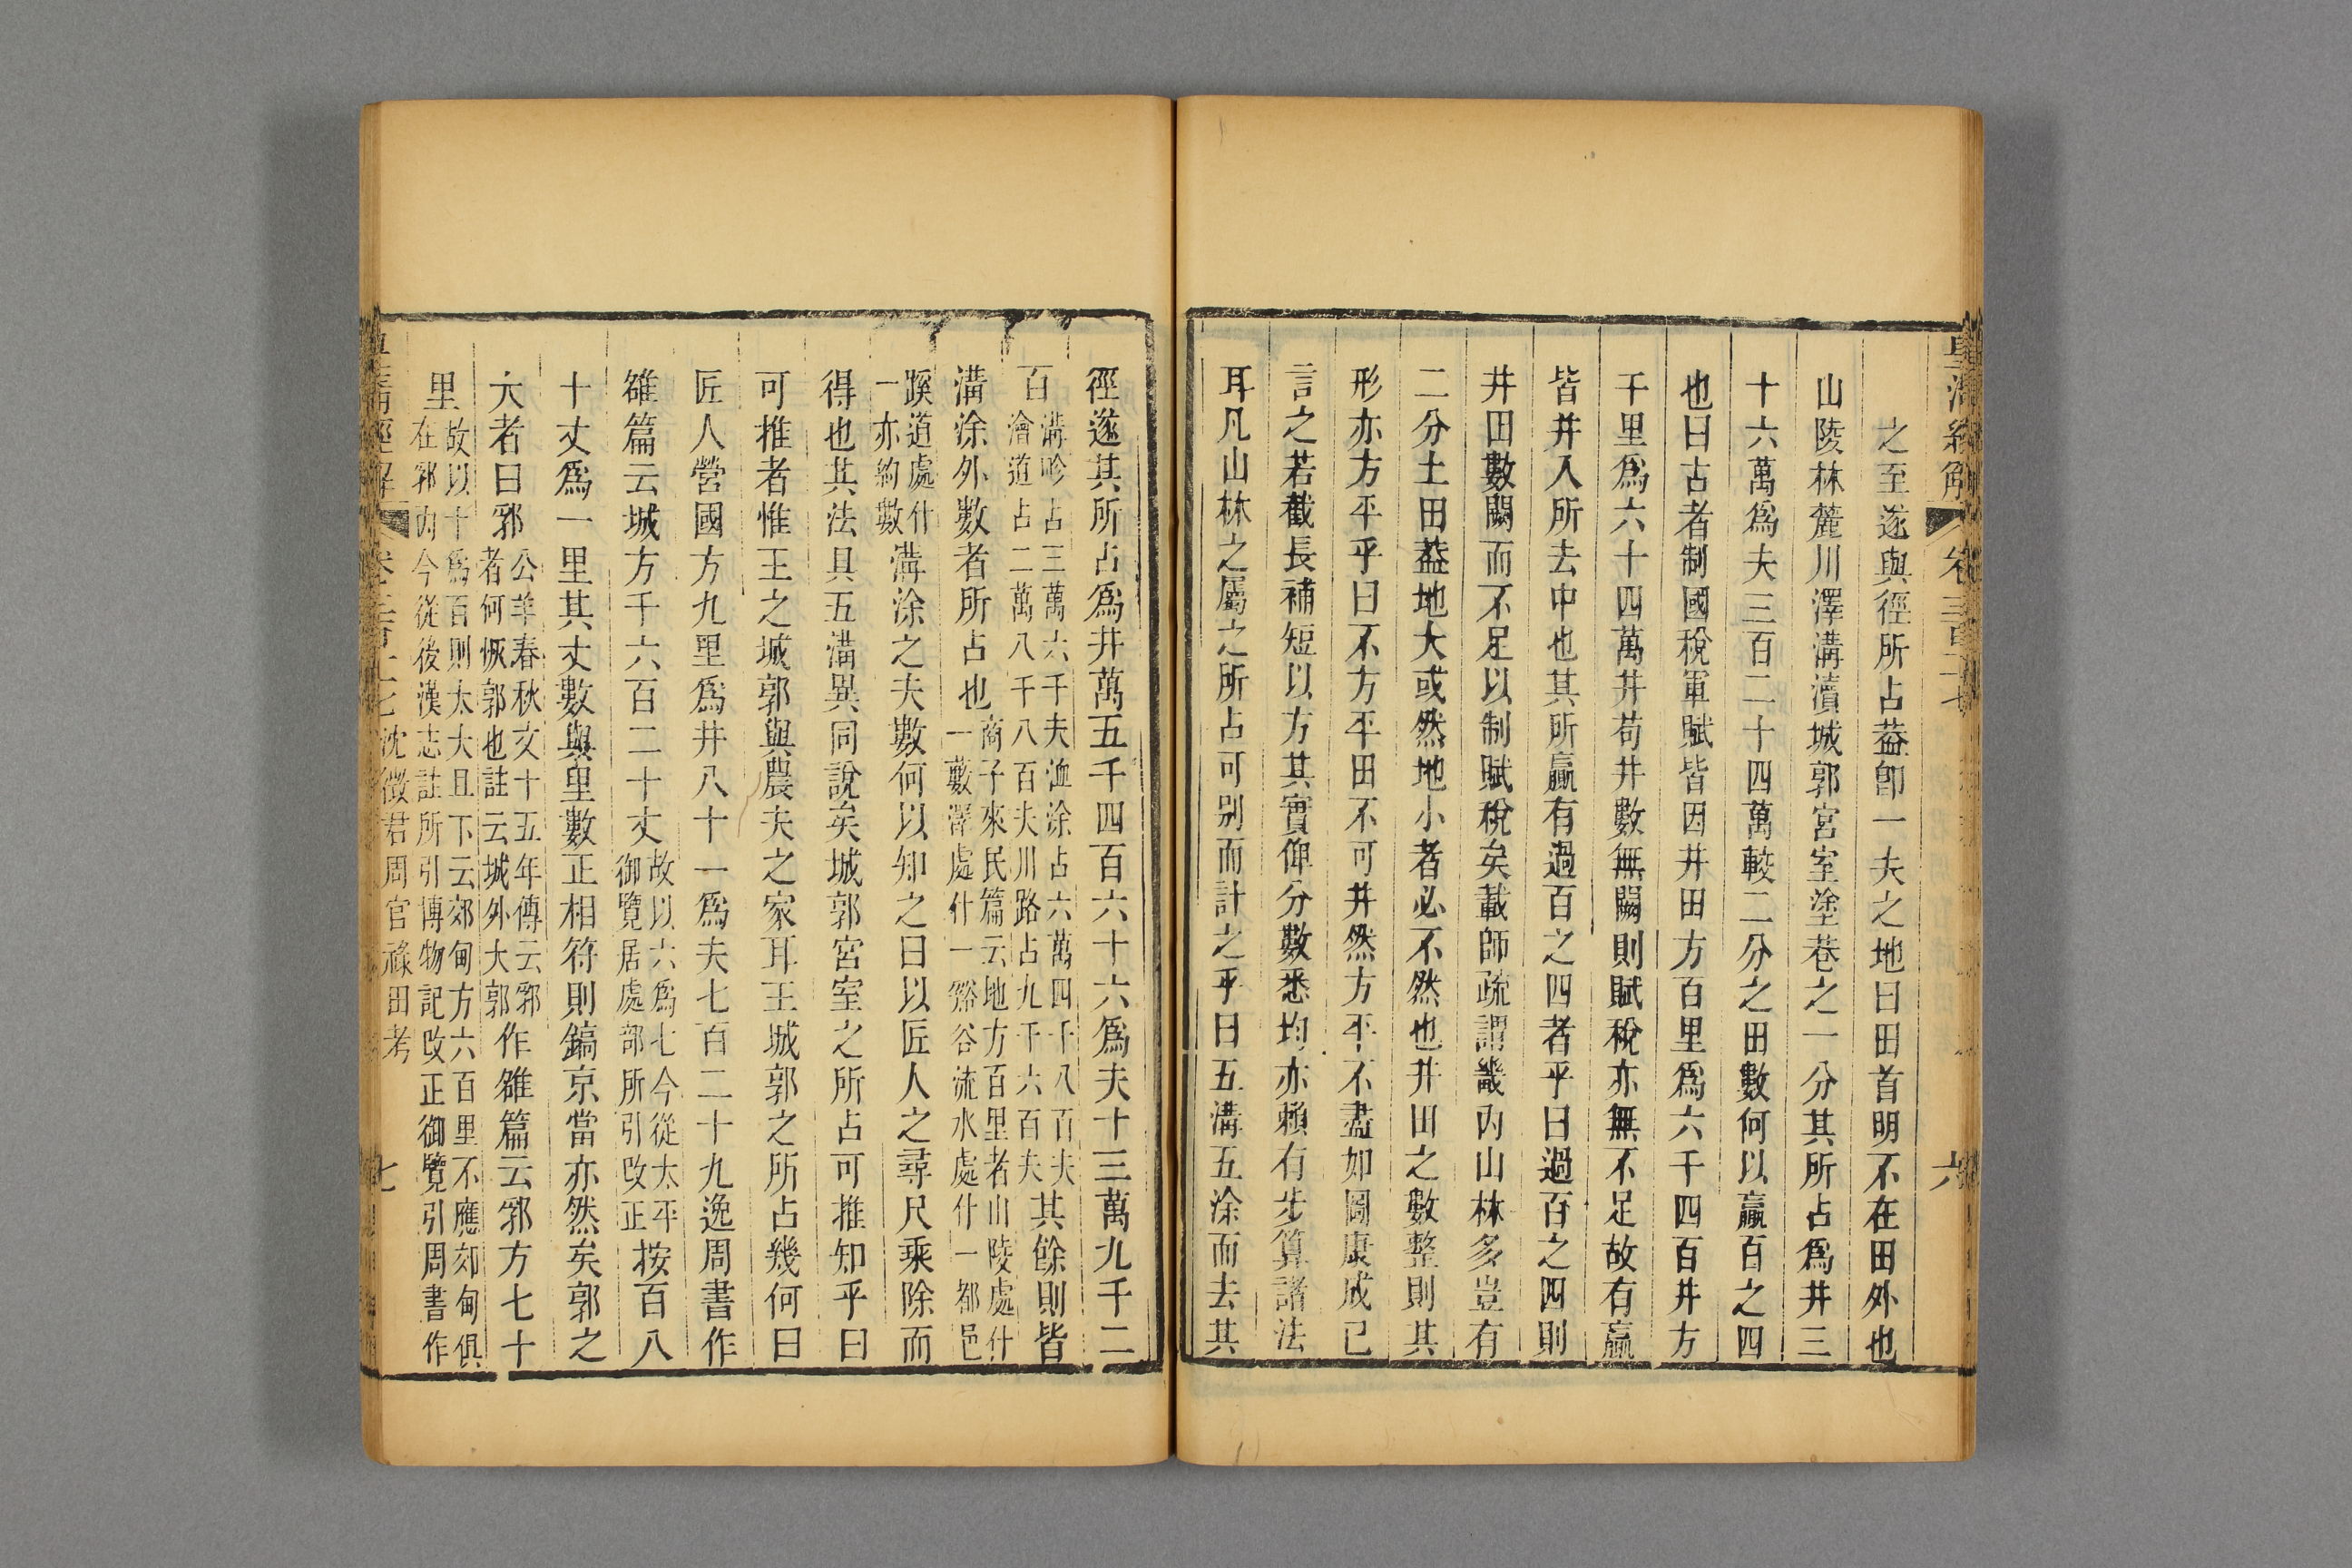 皇清經解 卷三百十七 六
之至遂與徑所占葢卽一夫之地曰田首明不在田外也
山陵林麓川澤溝瀆城郭宮室塗巷之一分其所占爲井三
十六萬爲夫三百二十四萬較二分之田數何以贏百之四
也曰古者制國稅軍賦皆因井田方百里爲六千四百井方
千里爲六十四萬井苟井數無闕則賦稅亦無不足故有贏
皆井入所去中也其所贏有過百之四者乎曰過百之四則
井田數闕而不足以制賦稅矣載師疏謂畿內山林多豈有
二分土田葢地大或然地小者必不然也井田之數整則其
形亦方平乎曰不方平田不可井然方平不盡如圖康成已
言之若截長補短以方其實俾分數悉均亦賴有步算諸法
耳凡山林之屬之所占可別而計之乎曰五溝五涂而去其
徑遂其所占爲井萬五千四百六十六爲夫十三萬九千二
百溝畛占三萬六千夫洫涂占六萬四千八百夫澮道占二萬八千八百夫川路占九千六百夫其餘則皆
溝涂外數者所占也商子來民篇云地方百里者山陵處什一藪澤處什一谿谷流水處什一都邑
蹊道處什一亦約數溝涂之夫數何以知之曰以匠人之尋尺乘除而
得也其法具五溝異同說矣城郭宮室之所占可推知乎曰
可推者惟王之城郭與農夫之家耳王城郭之所占幾何曰
匠人營國方九里爲井八十一爲夫七百二十九逸周書作
雒篇云城方千六百二十丈故以六爲七今從太平御覽居處部所引改正按百八
十丈爲一里其丈數與里數正相符則鎬京當亦然矣郭之
大者曰郛公羊春秋文十五年傳云郛者何恢郭也註云城外大郭作雒篇云郛方七十
里故以十爲百則太大且下云郊甸方六百里不應郊甸俱在郛內今從後漢志註所引博物記改正御覽引周書作
皇清經解 卷三百十七 沈徵君周官祿田考 七